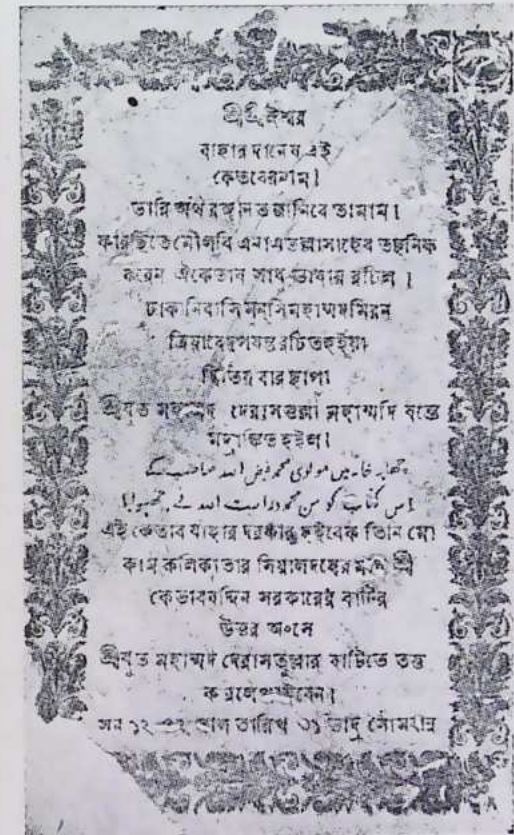 শ্রীশ্রীঈশ্বর
বাহার দানেষ এই
কেতাবেরনাম।
তারি অর্থ জানিবে তামাম।
ফারছিতে মৌলবি এনাএতল্লা সাহেব তছনিফ
করেন ঐকেতাব সাধু ভাষায় রচিল।
ঢাকানিবাসি মুনসি মহাম্মদ মিরন
রচিত হইয়া
দ্বিতিয় বার ছাপা
শ্রীযুত মহাম্মদ দেরাসতুল্লা মহাম্মদি যন্ত্রে
হইল।
چھاپہ خانہ میں مولوی محمد فیض اللہ صاحب کے
اس کتاب کو محمد دراست اللہ نے چھپوایا
এই কেতাব যাহার দরকার হইবেক তিনি মো
কাম কলিকাতার সিয়ালদহের শ্রী
কেতাবদ্দিন সরকারের বাটির
উত্তর অংসে
শ্রীযুত মহাম্মদ দেরাসতুল্লার বাটিতে তত্ত
করিলে পাইবেন।
সন সাল তারিখ ৩১ ভাদ্র সোমবার